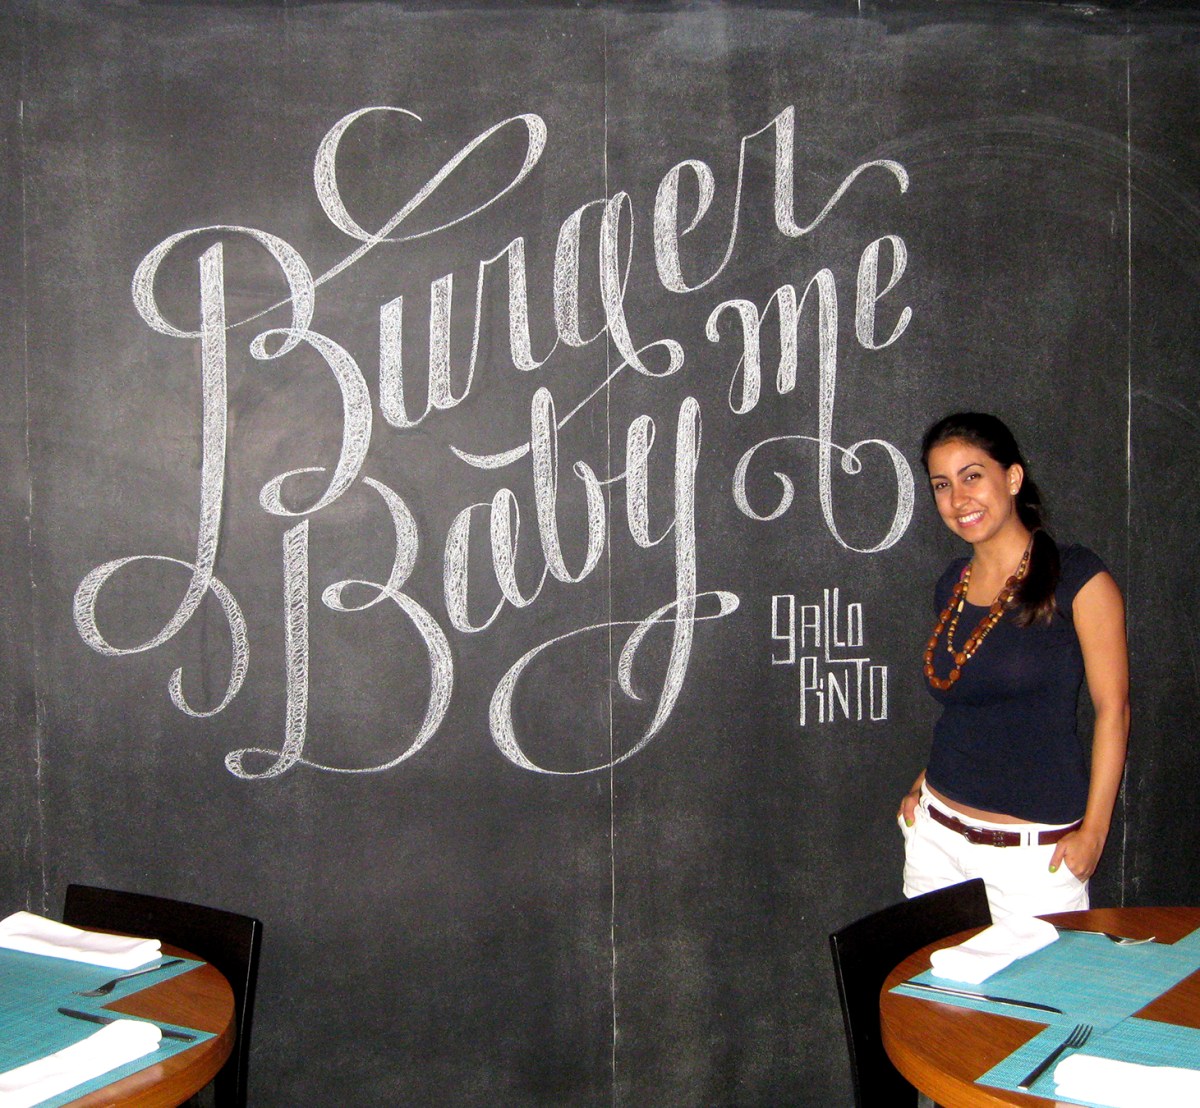 Burger
me
Baby
gallo
PiNTO